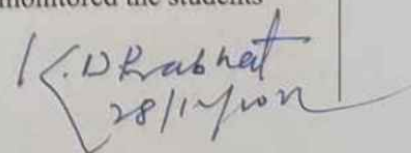 monitored the students
K.D Prabhat